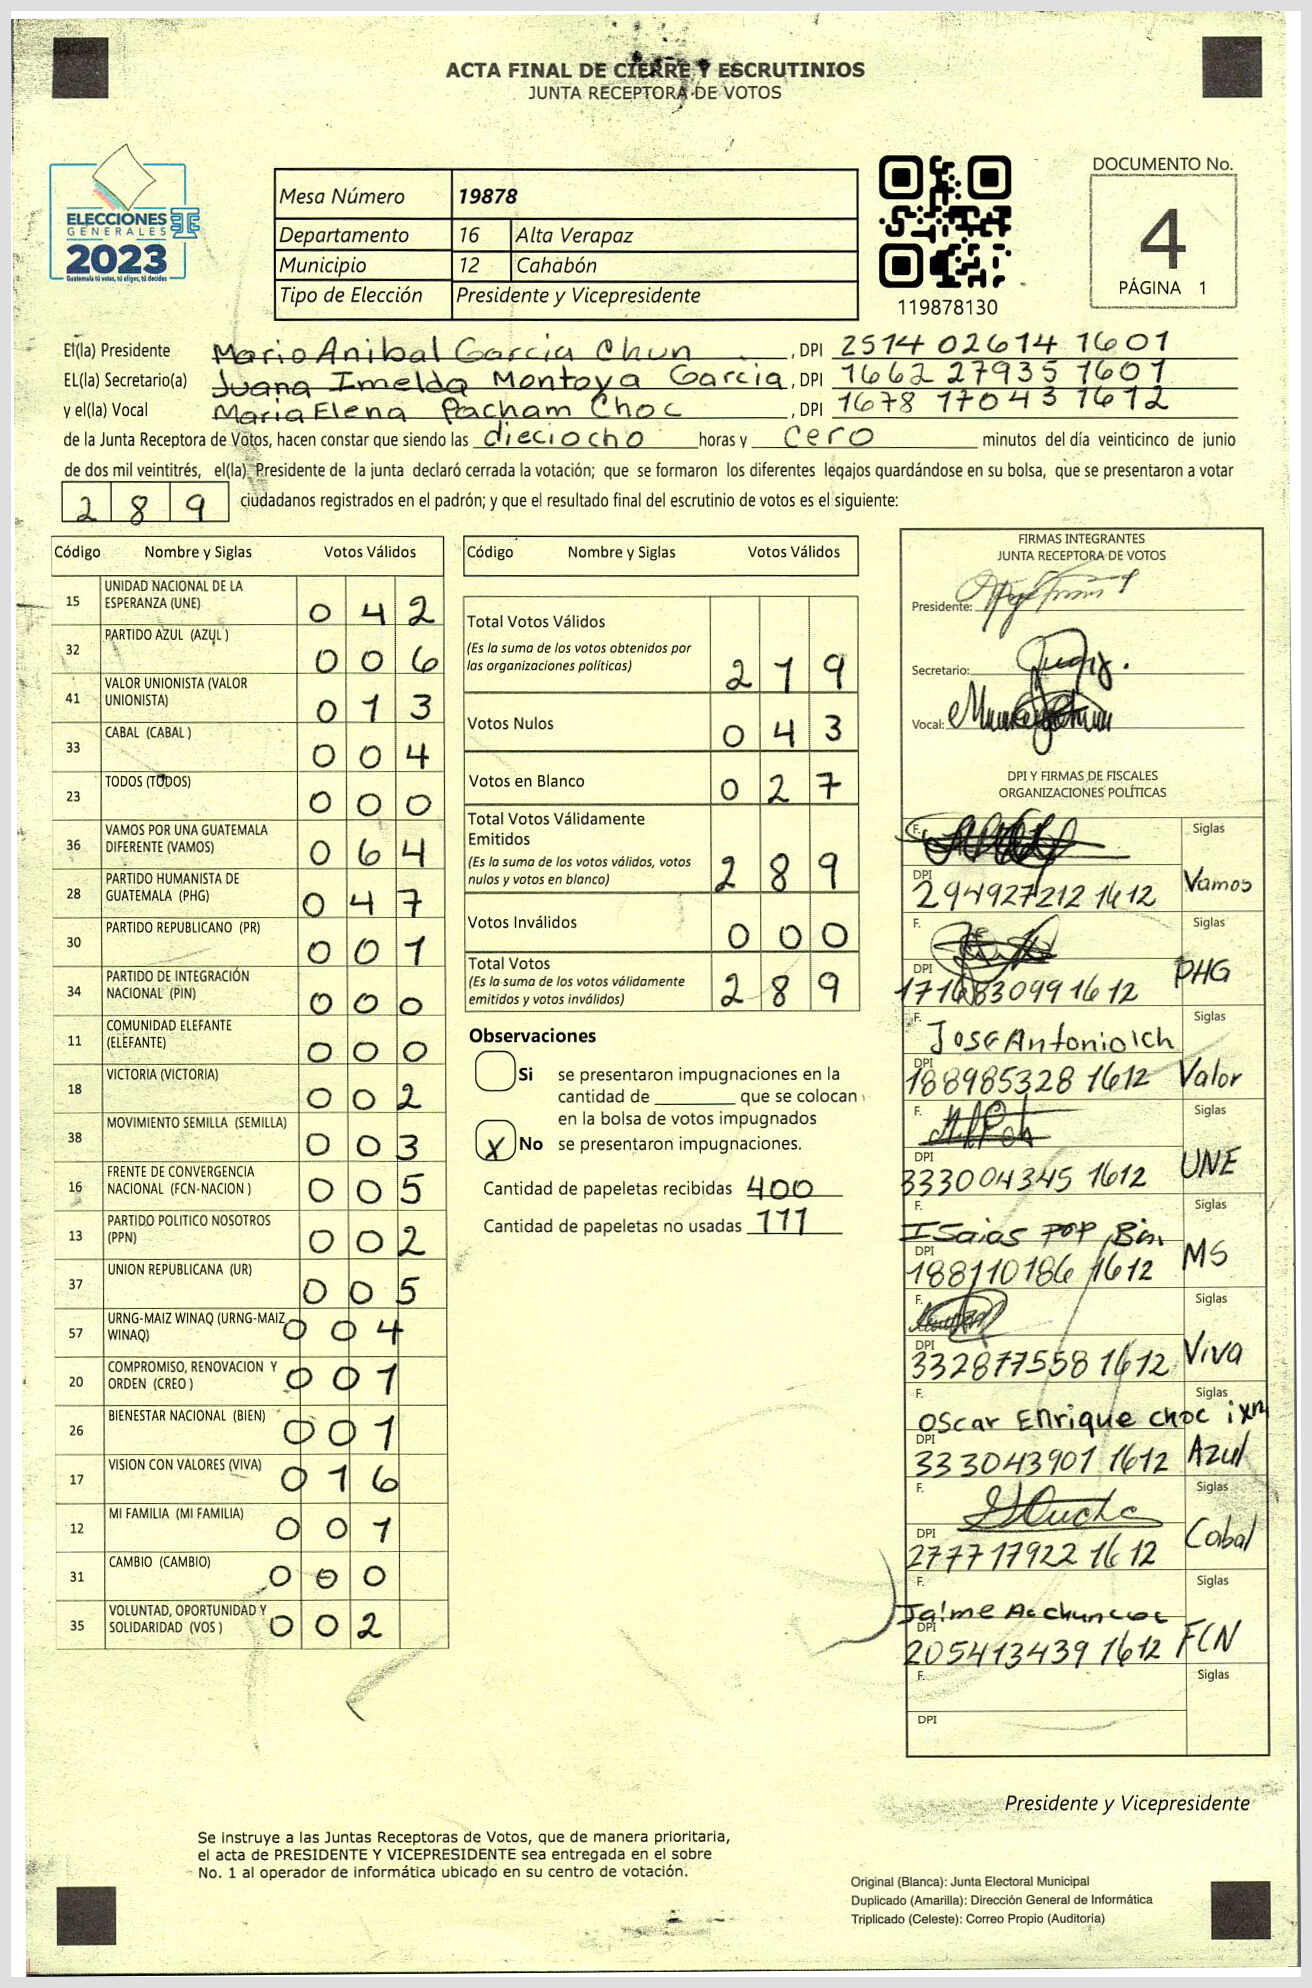 ACTA FINAL DE CIERRE Y ESCRUTINIOS
JUNTA RECEPTORA DE VOTOS
ELECCIONES
GENERALES
2023
Guatemala tú votas, tú eliges, tú decides
Mesa Número 19878
Departamento 16 Alta Verapaz
Municipio 12 Cahabón
Tipo de Elección Presidente y Vicepresidente
119878130
DOCUMENTO No.
4
PÁGINA 1
El(la) Presidente Mario Anibal Garcia Chun , DPI 2514 02614 1601
EL(la) Secretario(a) Juana Imelda Montoya Garcia , DPI 1662 27935 1601
y el(la) Vocal Maria Elena Pacham Choc , DPI 1678 17043 1612
de la Junta Receptora de Votos, hacen constar que siendo las dieciocho horas y cero minutos del día veinticinco de junio
de dos mil veintitrés, el(la) Presidente de la junta declaró cerrada la votación; que se formaron los diferentes legajos quardándose en su bolsa, que se presentaron a votar
289 ciudadanos registrados en el padrón; y que el resultado final del escrutinio de votos es el siguiente:
Código Nombre y Siglas Votos Válidos
15 UNIDAD NACIONAL DE LA ESPERANZA (UNE) 042
32 PARTIDO AZUL (AZUL ) 006
41 VALOR UNIONISTA (VALOR UNIONISTA) 013
33 CABAL (CABAL ) 004
23 TODOS (TODOS) 000
36 VAMOS POR UNA GUATEMALA DIFERENTE (VAMOS) 064
28 PARTIDO HUMANISTA DE GUATEMALA (PHG) 047
30 PARTIDO REPUBLICANO (PR) 001
34 PARTIDO DE INTEGRACIÓN NACIONAL (PIN) 000
11 COMUNIDAD ELEFANTE (ELEFANTE) 000
18 VICTORIA (VICTORIA) 002
38 MOVIMIENTO SEMILLA (SEMILLA) 003
16 FRENTE DE CONVERGENCIA NACIONAL (FCN-NACION ) 005
13 PARTIDO POLITICO NOSOTROS (PPN) 002
37 UNION REPUBLICANA (UR) 005
57 URNG-MAIZ WINAQ (URNG-MAIZ WINAQ) 004
20 COMPROMISO, RENOVACION Y ORDEN (CREO ) 001
26 BIENESTAR NACIONAL (BIEN) 001
17 VISION CON VALORES (VIVA) 016
12 MI FAMILIA (MI FAMILIA) 001
31 CAMBIO (CAMBIO) 000
35 VOLUNTAD, OPORTUNIDAD Y SOLIDARIDAD (VOS ) 002
Código Nombre y Siglas Votos Válidos
Total Votos Válidos
(Es la suma de los votos obtenidos por
las organizaciones políticas) 219
Votos Nulos 043
Votos en Blanco 027
Total Votos Válidamente
Emitidos
(Es la suma de los votos válidos, votos
nulos y votos en blanco) 289
Votos Inválidos 000
Total Votos
(Es la suma de los votos válidamente
emitidos y votos inválidos) 289
Observaciones
Si se presentaron impugnaciones en la
cantidad de ________ que se colocan
en la bolsa de votos impugnados
X No se presentaron impugnaciones.
Cantidad de papeletas recibidas 400
Cantidad de papeletas no usadas 111
FIRMAS INTEGRANTES
JUNTA RECEPTORA DE VOTOS
Presidente:
Secretario:
Vocal:
DPI Y FIRMAS DE FISCALES
ORGANIZACIONES POLÍTICAS
F. Siglas
DPI 294927212 1612 Vamos
F. Siglas
DPI 171683099 1612 PHG
F. Jose Antonio Ich Siglas
DPI 188985328 1612 Valor
F. Siglas
DPI 333004345 1612 UNE
F. Isaias Pop Siglas
DPI 188110186 1612 MS
F. Siglas
DPI 332877558 1612 Viva
F. Oscar Enrique choc Siglas
DPI 333043901 1612 Azul
F. Siglas
DPI 277717922 1612 Cabal
F. Jaime Siglas
DPI 205413439 1612 FCN
F. Siglas
DPI
Presidente y Vicepresidente
Se instruye a las Juntas Receptoras de Votos, que de manera prioritaria,
el acta de PRESIDENTE Y VICEPRESIDENTE sea entregada en el sobre
No. 1 al operador de informática ubicado en su centro de votación.
Original (Blanca): Junta Electoral Municipal
Duplicado (Amarilla): Dirección General de Informática
Triplicado (Celeste): Correo Propio (Auditoría)